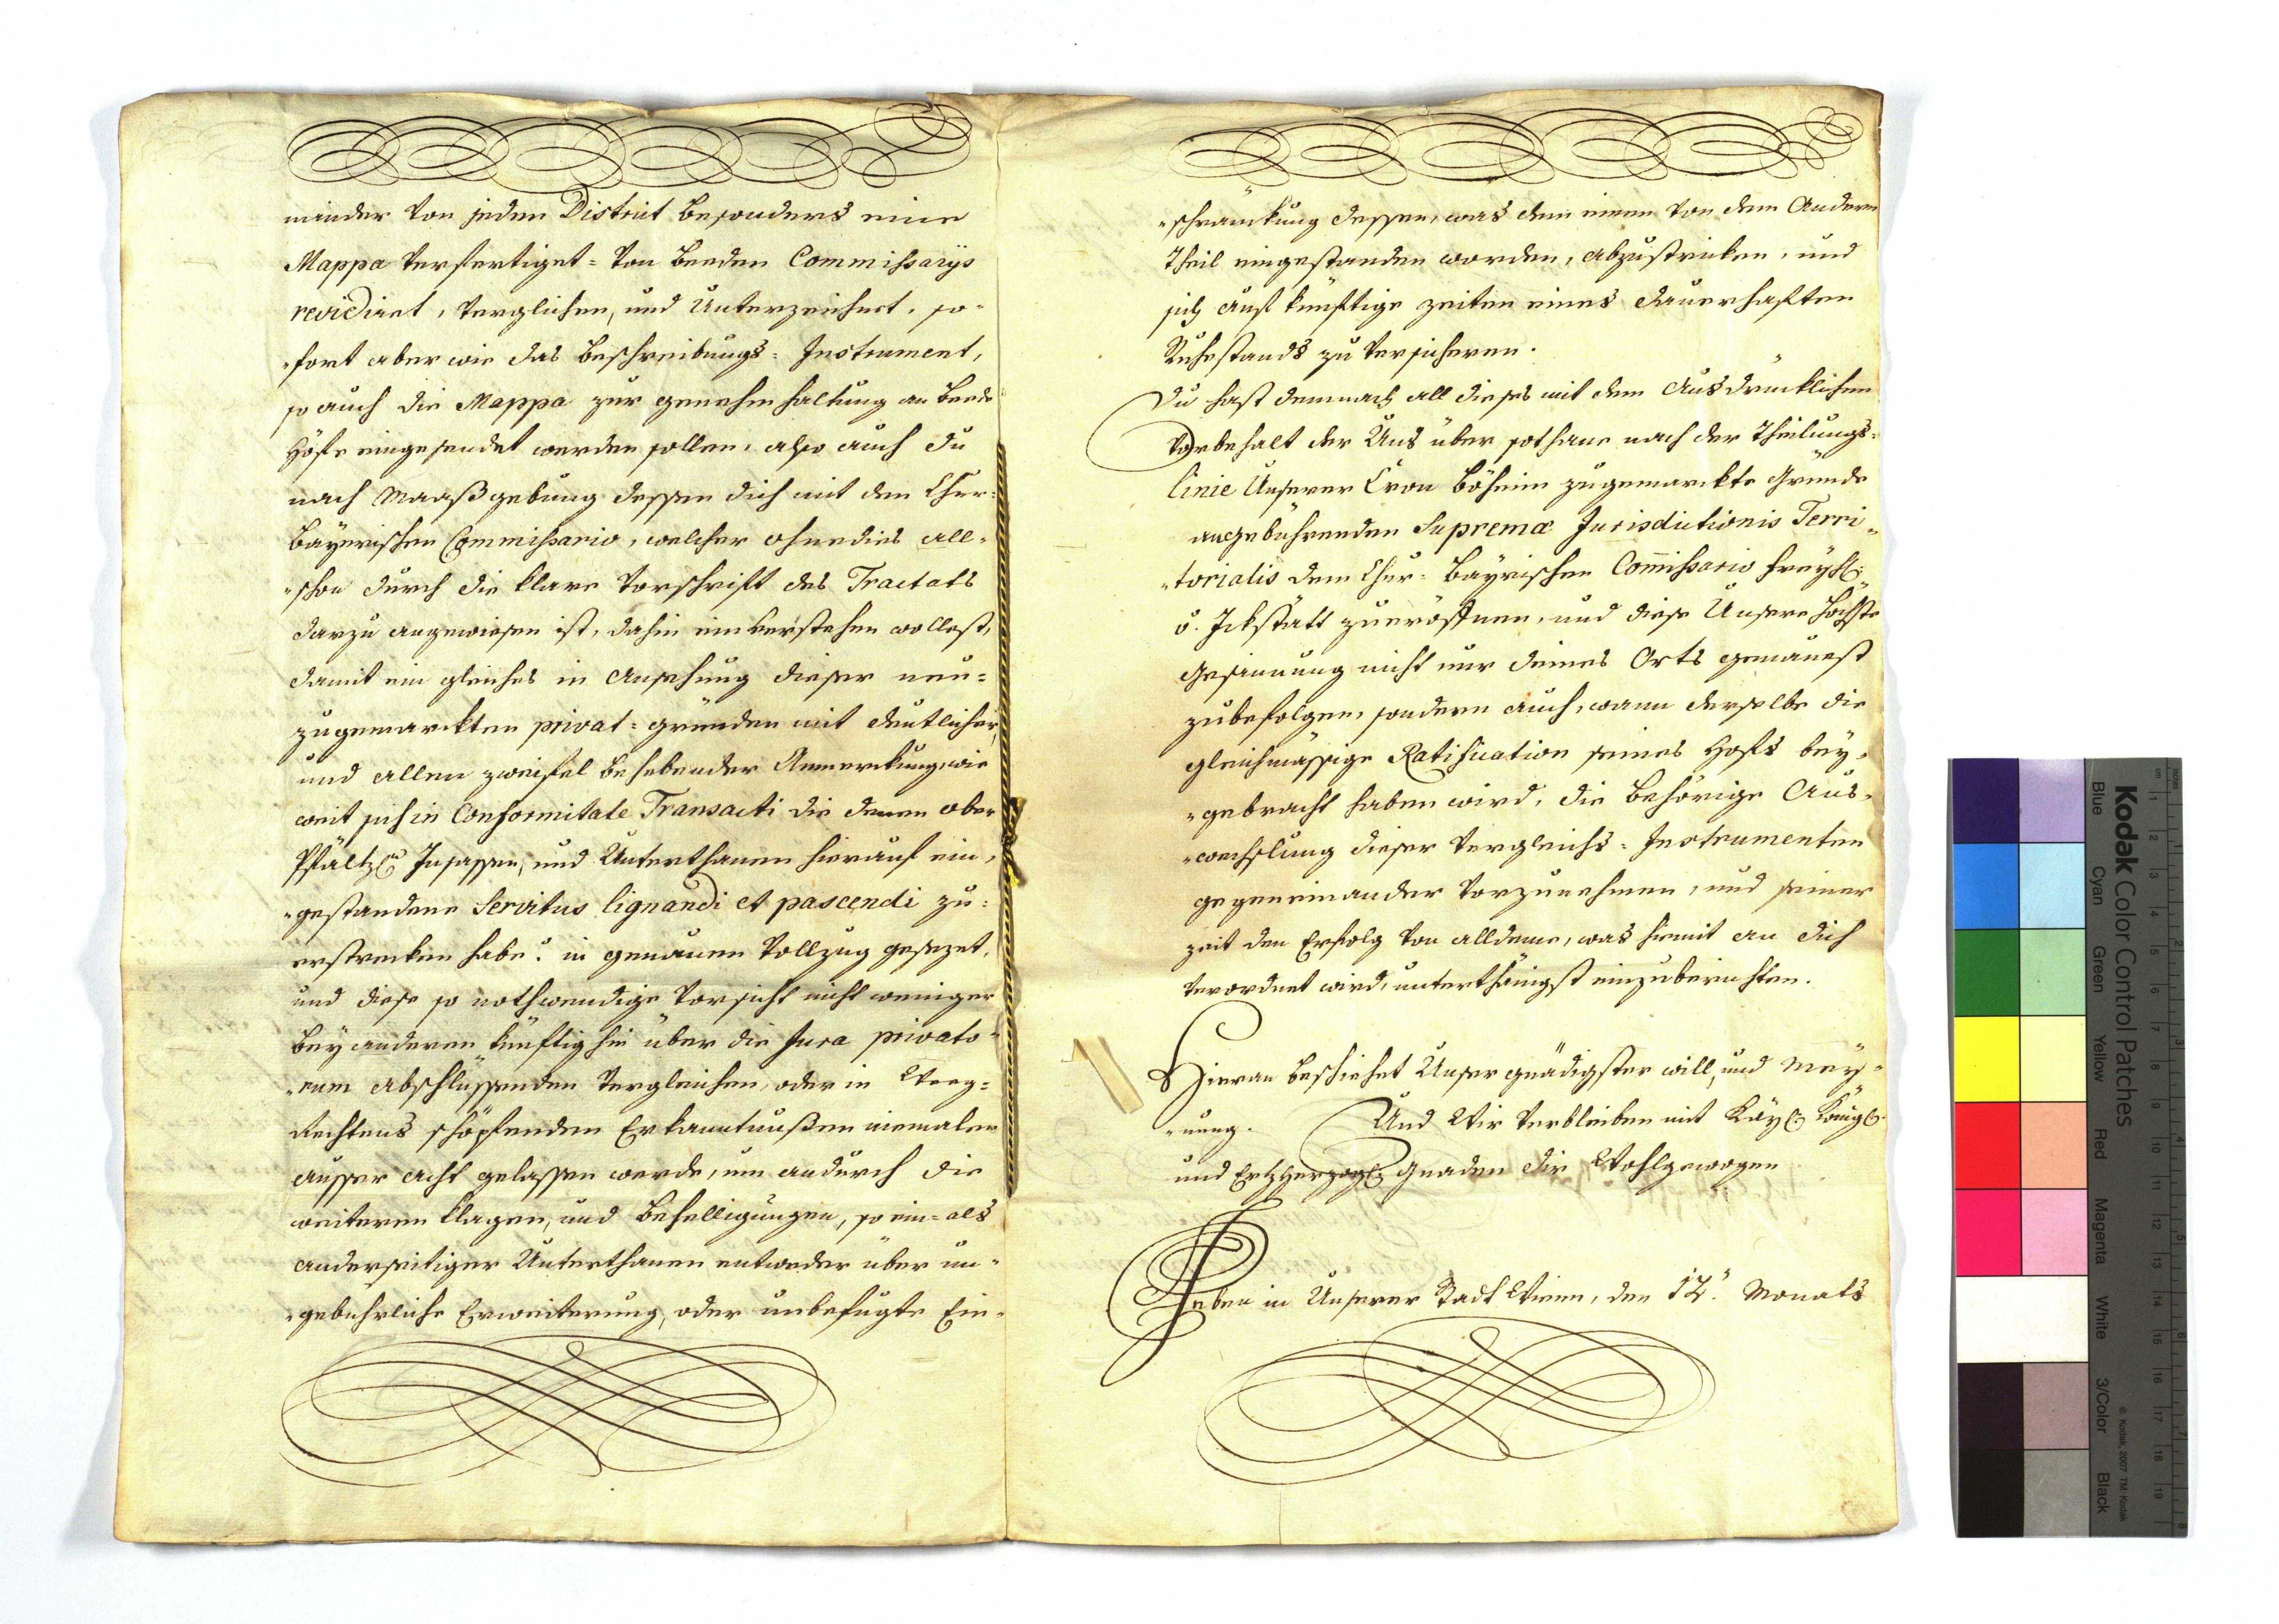 minder von jeden District besonders eine
Mappa verfertiget = von beeden Commissarÿs
revidiret, verglichen, und Unterzeichnet, so-
-fort aber wie das beschreibungs-Instrument,
so auch die Mappa zur genehmhaltung an beede
Höfe eingesendet werden sollen, also auch du
nach Maaßgebung dessen dich mit den Chur-
bayerischen Commissario, welcher ohnedies all-
-schon durch die klare Vorschrift des Tractats
darzu angewiesen ist, dahin einverstehen wollest,
damit ein gleiches in Ansehung dieser neu-
zugemarckten privat-gründen mit deutlicher,
und allen zweifel behebender Anmerckung wie
weit sich in Conformitate Transacti die denen ober
Pfältz. Insassen, und Unterthanen hierauf ein-
-gestandene Servitus lignandi et pascendi zu-
erstrecken habe? in genauen Vollzug gesezet,
und diese so nothwendige Vorsicht nicht weniger
bey anderen künftighin über die Jura privato-
-rum abschlüssenden Vergleichen, oder in Weeg-
Rechtens schöpfenden Erkanntnußen niemalen
ausser acht gelassen werde, um andurch die
weiteren klagen, und behelligungen, so ein- als
anderseitiger Unterthanen entweder über un-
-gebührliche Erweiterung, oder unbefugte Ein-
-schränckung dessen, was dem einen von dem Anderen
Theil eingestanden worden, abzustricken, und
sich auf künftige zeiten eines dauerhaften
Ruhestands zu versicheren.
Du hast demnach all dieses mit dem Ausdrücklichen
Vorbehalt der Uns über sothane nach der Theilungs-
linie Unserer Cron Böheim zugemarckte Gründe
angebührenden Supremæ Jurisdictionis Terri-
-torialis dem Chur-Bayrischen Com̄issario Freyh.
v. Ickstatt zu eröffnen, und diese Unsere Höchste
Gesinnung nicht nur deines Orts genauest
zubefolgen, sondern auch, wann derselbe die
gleichmässige Ratification seines Hofs bey-
-gebracht haben wird, die behörige Aus-
-wechslung dieser Vergleichs-Instrumenten
gegeneinander vorzunehmen, und seiner
zeit den Erfolg von alldeme, was hiemit an dich
verordnet wird, unterthänigst einzuberichten.
Hieran beschiehet Unser gnädigster will, und Meÿ-
-nung. Und Wir verbleiben mit Kaÿ. Königl.
und Ertzherzogl. Gnaden dir Wohlgewogen
Geben in Unserer Stadt Wienn, den 12. Monats
Kodak Color Control Patches
Blue Cyan Green Yellow Red Magenta White 3/Color Black
© Kodak, 2007 TM: Kodak